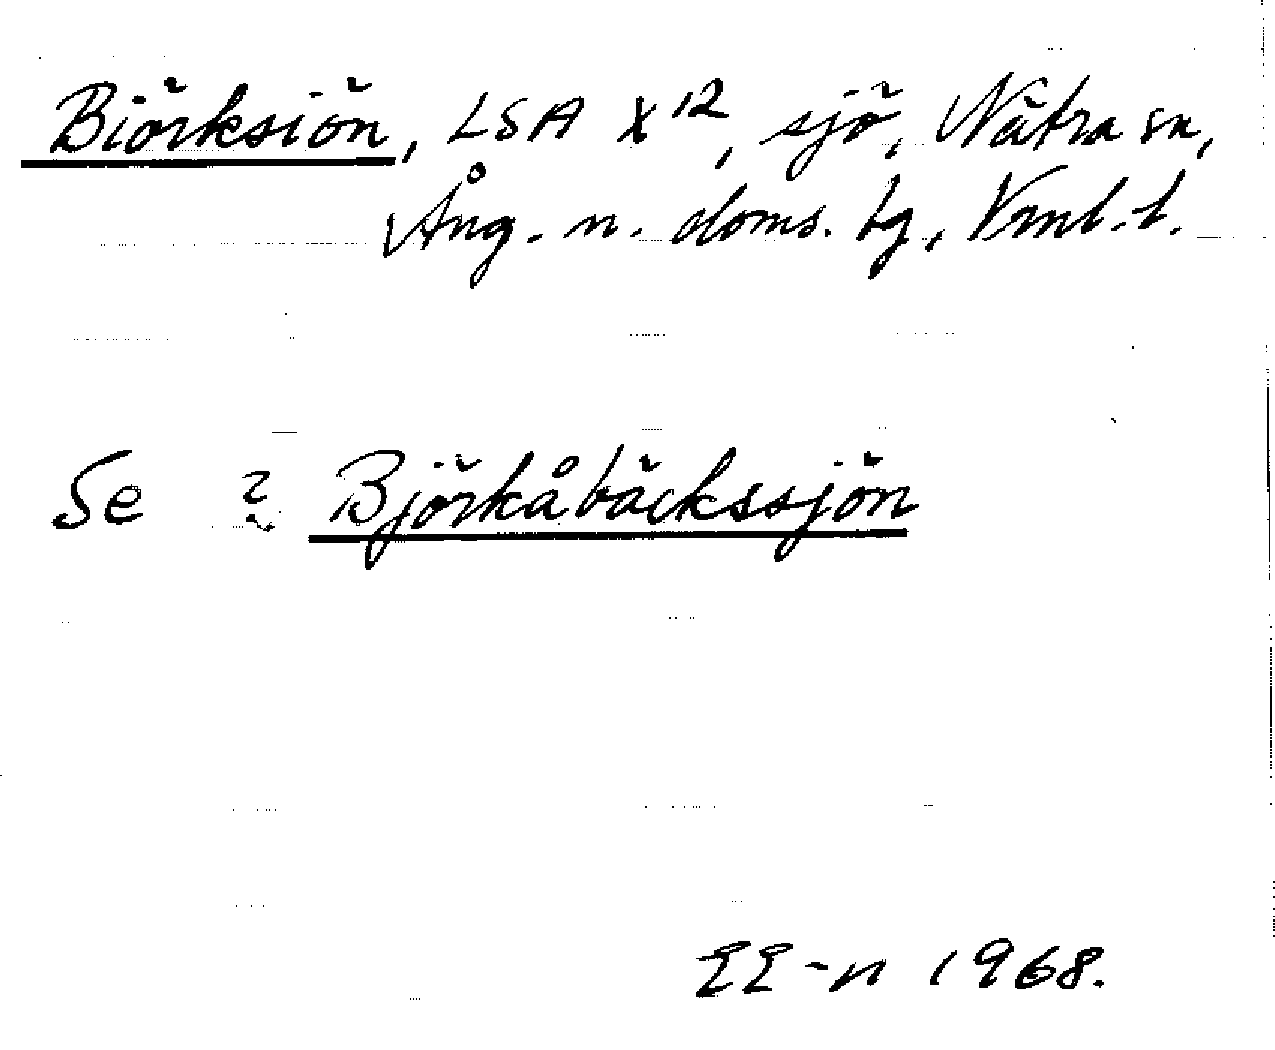 Biörksiön, LSA X 12, sjö, Nätra sn,
Ång. n. doms. tg, Vrnl. l.
Se 2 Björkåbäckssjön
EE-n 1968.